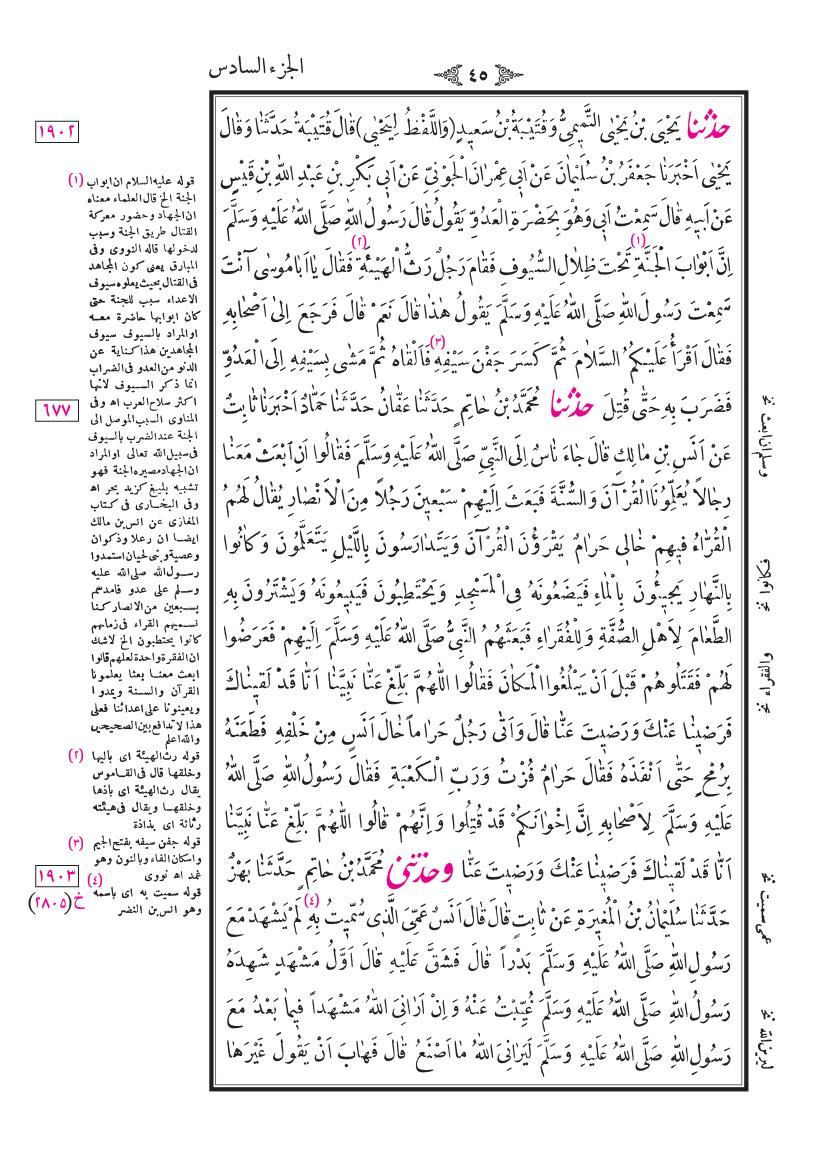 الجزء السادس
٤٥
حدثنا يَحْيَى بْنُ يَحْيَى التَّمِيمِيُّ وَقُتَيْبَةُ بْنُ سَعِيدٍ (وَاللَّفْظُ لِيَحْيَى) قَالَ قُتَيْبَةُ حَدَّثَنَا وَقَالَ
يَحْيَى اَخْبَرَنَا جَعْفَرُ بْنُ سُلَيْمَانَ عَنْ اَبِي عِمْرَانَ الْجَوْنِيِّ عَنْ اَبِي بَكْرِ بْنِ عَبْدِ اللهِ بْنِ قَيْسٍ
عَنْ اَبِيهِ قَالَ سَمِعْتُ اَبِي وَهُوَ بِحَضْرَةِ الْعَدُوِّ يَقُولُ قَالَ رَسُولُ اللهِ صَلَّى اللهُ عَلَيْهِ وَسَلَّمَ
اِنَّ اَبْوَابَ الْجَنَّةِ (١) تَحْتَ ظِلَالِ السُّيُوفِ فَقَامَ رَجُلٌ رَثُّ الْهَيْئَةِ (٢) فَقَالَ يَا اَبَا مُوسَى آنْتَ
سَمِعْتَ رَسُولَ اللهِ صَلَّى اللهُ عَلَيْهِ وَسَلَّمَ يَقُولُ هٰذَا قَالَ نَعَمْ قَالَ فَرَجَعَ اِلَى اَصْحَابِهِ
فَقَالَ اَقْرَأُ عَلَيْكُمُ السَّلَامَ ثُمَّ كَسَرَ جَفْنَ سَيْفِهِ (٣) فَاَلْقَاهُ ثُمَّ مَشَى بِسَيْفِهِ اِلَى الْعَدُوِّ
فَضَرَبَ بِهِ حَتَّى قُتِلَ حدثنا مُحَمَّدُ بْنُ حَاتِمٍ حَدَّثَنَا عَفَّانُ حَدَّثَنَا حَمَّادٌ اَخْبَرَنَا ثَابِتٌ
عَنْ اَنَسِ بْنِ مَالِكٍ قَالَ جَاءَ نَاسٌ اِلَى النَّبِيِّ صَلَّى اللهُ عَلَيْهِ وَسَلَّمَ فَقَالُوا اَنِ ابْعَثْ مَعَنَا
رِجَالاً يُعَلِّمُونَا الْقُرْآنَ وَالسُّنَّةَ فَبَعَثَ اِلَيْهِمْ سَبْعِينَ رَجُلاً مِنَ الْاَنْصَارِ يُقَالُ لَهُمُ
الْقُرَّاءُ فِيهِمْ خَالِي حَرَامٌ يَقْرَؤُنَ الْقُرْآنَ وَيَتَدَارَسُونَ بِاللَّيْلِ يَتَعَلَّمُونَ وَكَانُوا
بِالنَّهَارِ يَجِيئُونَ بِالْمَاءِ فَيَضَعُونَهُ فِي الْمَسْجِدِ وَيَحْتَطِبُونَ فَيَبِيعُونَهُ وَيَشْتَرُونَ بِهِ
الطَّعَامَ لِاَهْلِ الصُّفَّةِ وَلِلْفُقَرَاءِ فَبَعَثَهُمُ النَّبِيُّ صَلَّى اللهُ عَلَيْهِ وَسَلَّمَ اِلَيْهِمْ فَعَرَضُوا
لَهُمْ فَقَتَلُوهُمْ قَبْلَ اَنْ يَبْلُغُوا الْمَكَانَ فَقَالُوا اللهُمَّ بَلِّغْ عَنَّا نَبِيَّنَا اَنَّا قَدْ لَقِينَاكَ
فَرَضِينَا عَنْكَ وَرَضِيتَ عَنَّا قَالَ وَاَتَى رَجُلٌ حَرَاماً خَالَ اَنَسٍ مِنْ خَلْفِهِ فَطَعَنَهُ
بِرُمْحٍ حَتَّى اَنْفَذَهُ فَقَالَ حَرَامٌ فُزْتُ وَرَبِّ الْكَعْبَةِ فَقَالَ رَسُولُ اللهِ صَلَّى اللهُ
عَلَيْهِ وَسَلَّمَ لِاَصْحَابِهِ اِنَّ اِخْوَانَكُمْ قَدْ قُتِلُوا وَاِنَّهُمْ قَالُوا اللهُمَّ بَلِّغْ عَنَّا نَبِيَّنَا
اَنَّا قَدْ لَقِينَاكَ فَرَضِينَا عَنْكَ وَرَضِيتَ عَنَّا وحدثني مُحَمَّدُ بْنُ حَاتِمٍ حَدَّثَنَا بَهْزٌ
حَدَّثَنَا سُلَيْمَانُ بْنُ الْمُغِيرَةِ عَنْ ثَابِتٍ قَالَ قَالَ اَنَسٌ عَمِّيَ الَّذِي سُمِّيتُ بِهِ (٤) لَمْ يَشْهَدْ مَعَ
رَسُولِ اللهِ صَلَّى اللهُ عَلَيْهِ وَسَلَّمَ بَدْراً قَالَ فَشَقَّ عَلَيْهِ قَالَ اَوَّلُ مَشْهَدٍ شَهِدَهُ
رَسُولُ اللهِ صَلَّى اللهُ عَلَيْهِ وَسَلَّمَ غُيِّبْتُ عَنْهُ وَاِنْ اَرَانِيَ اللهُ مَشْهَداً فِيمَا بَعْدُ مَعَ
رَسُولِ اللهِ صَلَّى اللهُ عَلَيْهِ وَسَلَّمَ لَيَرَانِيَ اللهُ مَا اَصْنَعُ قَالَ فَهَابَ اَنْ يَقُولَ غَيْرَهَا
وسلم ان ابعث نخ
فكانوا نخ
والفقراء نخ
عمي سميت نخ
ليرين الله نخ
١٩٠٢
(١) قوله عليه السلام ان ابواب
الجنة الخ قال العلماء معناه
ان الجهاد وحضور معركة
القتال طريق الجنة وسبب
لدخولها قاله النووى وفى
المبارق يعنى كون المجاهد
فى القتال بحيث يعلوه سيوف
الاعداء سبب للجنة حتى
كان ابوابها حاضرة معه
او المراد بالسيوف سيوف
المجاهدين هذا كناية عن
الدنو من العدو فى الضراب
انما ذكر السيوف لانها
اكثر سلاح العرب اه وفى
٦٧٧
المناوى السبب الموصل الى
الجنة عند الضرب بالسيوف
فى سبيل الله تعالى او المراد
ان الجهاد مصيره الجنة فهو
تشبيه بليغ كزيد بحر اه
وفى البخارى فى كتاب
المغازى عن انس بن مالك
ايضا ان رعلا وذكوان
وعصية وبنى لحيان استمدوا
رسول الله صلى الله عليه
وسلم على عدو فامدهم
بسبعين من الانصار كنا
نسميهم القراء فى زمانهم
كانوا يحتطبون الخ لاشك
ان الفقرة واحدة لعلهم قالوا
ابعث معنا بعثا يعلمونا
القرآن والسنة ويمدوا
ويعينونا على اعدائنا فعلى
هذا لا تدافع بين الصحيحين
والله اعلم
(٢) قوله رث الهيئة اى باليها
وخلقها قال فى القاموس
يقال رث الهيئة اى باذها
وخلقها ويقال فى هيئته
رثاثة اى بذاذة
(٣) قوله جفن سيفه بفتح الجيم
واسكان الفاء وبالنون وهو
غمد اه نووى
١٩٠٣
(٤) قوله سميت به اى باسمه
وهو انس بن النضر
خ (٢٨٠٥)